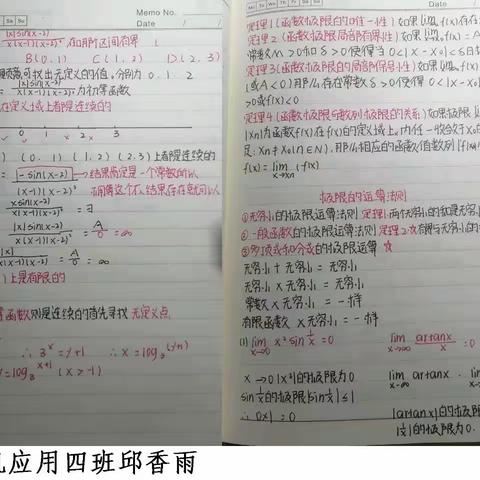 Memo No.
Date / /
Mo Tu We Th Fr Sa Su
Date
|x|sin(x-2)
x(x-1)(x-2)² 在如那区间有界 (
B(0,1) C(1,2) D(2,3)
可找出无定义的值,分别为 0. 1 2
为初等函数
在定义域上都是连续的
0 1 2 3
(0,1) (1,2) (2,3)上都是连续的
-sin(x-2)
x(x-1)(x-2)²
结果确定是一个常数可以
x sin(x-2)
x(x-1)(x-2)² = ∃
|x| sin(x-2)
x(x-1)(x-2)² = A/0 = ∞
|x|
x(x-1)(x-2) = A/0 = ∞
)上是有限的
函数则是连续的首先寻找 无定义点
∴ 3^x = y+1 ∴ x = log₃^(y+1)
y = log₃^(x+1) (x > -1)
定理1(函数极限的唯一性)如果lim f(x)存在
定理2(函数极限局部有界性)如果lim f(x)=A
常数M>0和δ>0使得当0<|x-x₀|<δ
定理3(函数极限的局部保号性)如果lim
(或A<0)那么存在常数δ>0使得0<|x-x₀|
>0或f(x)<0
定理4(函数极限与数列极限的关系)如果极限lim
{xn}为函数f(x)在f(x)的定义域上内任一收敛于x₀
足:xn≠x₀(n∈N),那么相应的函数值数列{f(xn)}
f(x)=lim f(x)
极限的运算法则
①无穷小的极限运算法则 定理1:两无穷小的和是无穷小
②一般函数的极限运算法则 定理2:有界与无穷小的
③多项式和分式的极限运算 ☆
无穷小+无穷小=无穷小
无穷小×无穷小=无穷小
常数×无穷小=一样
有限函数×无穷小=一样
(1) lim x² sin 1/x = 0
x→0
lim arctanx/x = 0
x→∞
x→0 |x²|的极限为0
lim arctanx · lim
x→∞
sin 1/x 的极限 |sin 1/x| ≤ 1
∴ 0×1 = 0
|arctanx|的极限
|1/x|的极限为0.
应用四班邱香雨